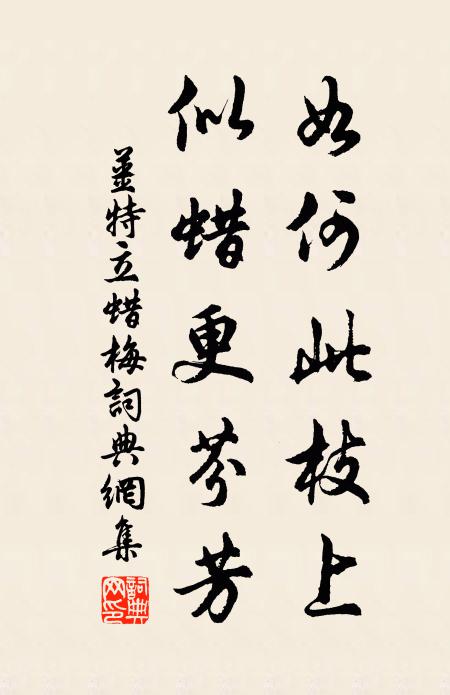 如何此枝上
似蜡更芬芳
薑特立蜡梅詞典網集
詞典
网印